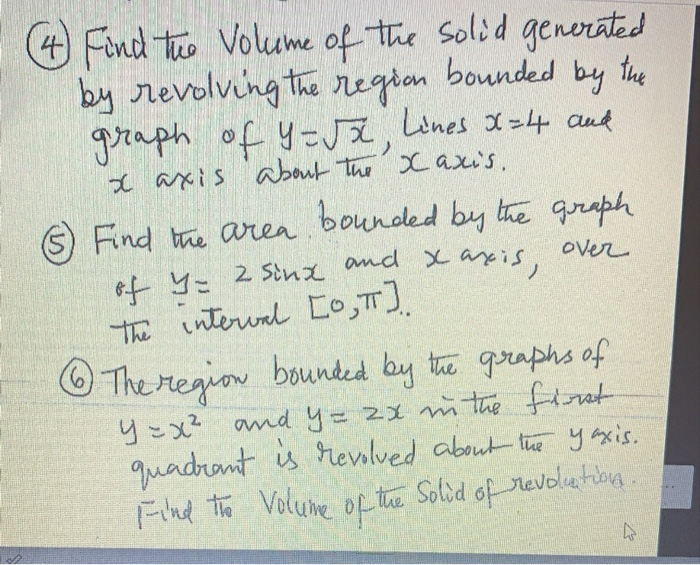 ④ Find the Volume of the solid generated
by revolving the region bounded by the
graph of y=√x, Lines x=4 and
x axis about the x axis.
⑤ Find the area bounded by the graph
of y= 2 sinx and x axis, over
the interval [0,π].
⑥ The region bounded by the graphs of
y=x² and y=2x in the first
quadrant is revolved about the y axis.
Find the Volume of the Solid of revolution.